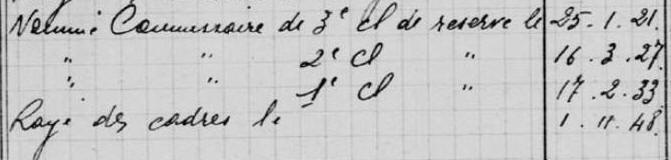 Nommé Commissaire de 3e cl de reserve le 25.1.21.
" " 2e Cl " 16.3.27.
" " 1e Cl " 17.2.33
Rayé des cadres le 1.11.48.